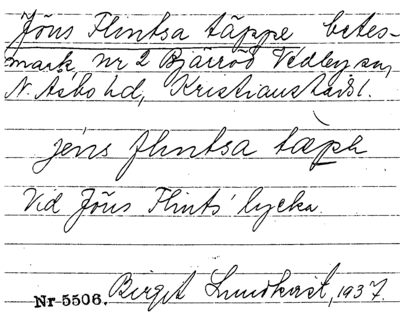 Jöns Flintsa täppe betes-
mark, nr 2 Bjärröd Vedby sn,
N. Åsbo hd, Kristianstads l.
jéns flintsa tàpe
Vid Jöns Flints' lycka
Nr 5506. Birgit Lundkvist, 1937.